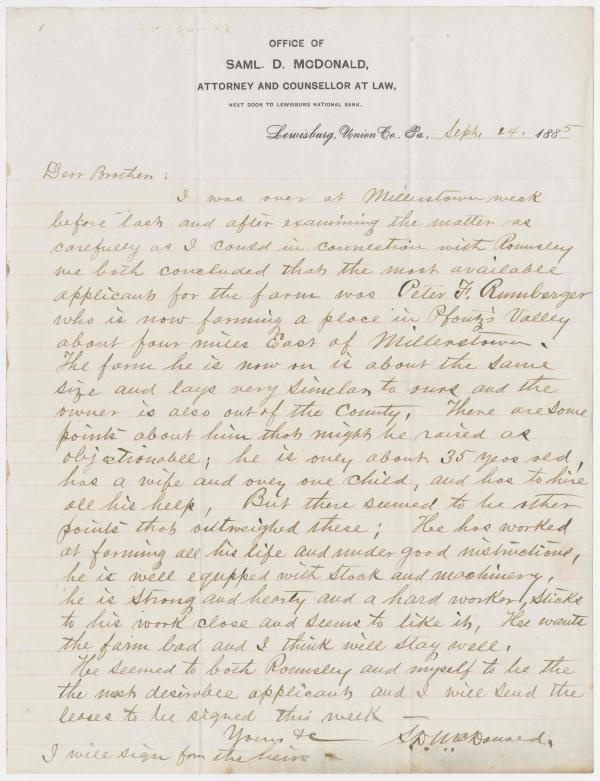 OFFICE OF
SAML. D. McDONALD,
ATTORNEY AND COUNSELLOR AT LAW,
NEXT DOOR TO LEWISBURG NATIONAL BANK.
Lewisburg, Union Co., Pa. Sept. 24. 1885
Dear Brother;
I was over at Millerstown week
before last and after examining the matter as
carefully as I could in connection with Rounsley
we both concluded that the most available
applicant for the farm was Peter F. Rumberger
who is now farming a place in Pfoutz's Valley
about four miles East of Millerstown.
The farm he is now on is about the same
size and lays very similar to ours and the
owner is also out of the County. There are some
points about him that might be raised as
objectionable; he is only about 35 years old,
has a wife and only one child, and has to hire
all his help, But there seemed to be other
points that outweighed these; He has worked
at farming all his life and under good instructions,
he is well equpped with stock and machinery,
he is strong and hearty and a hard worker, sticks
to his work close and seems to like it, He wants
the farm bad and I think will stay well.
He seemed to both Rounsley and myself to be the
the most desirable applicant and I will send the
leases to be signed this week —
Yours &c S.D. McDonald.
I will sign for the heirs